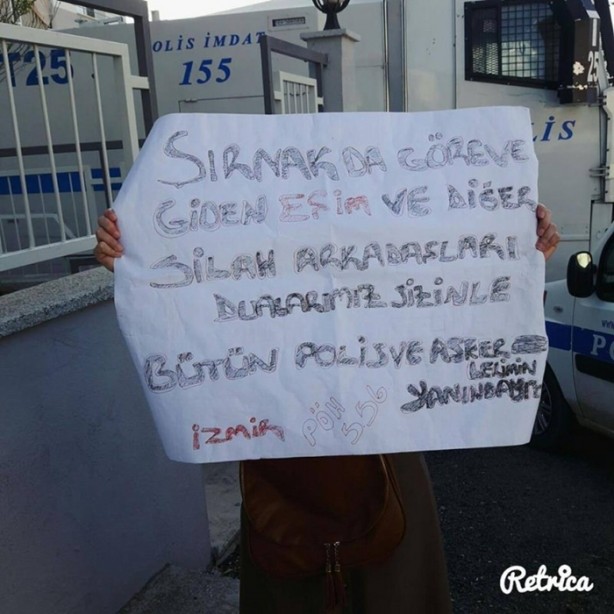 POLİS İMDAT
155
T 25
T
25
LİS
ŞIRNAK DA GÖREVE
GİDEN EŞİM VE DİĞER
SİLAH ARKADAŞLARI
DUALARIMIZ SİZİNLE
BÜTÜN POLİS VE ASKER
LERİMİN
YANINDAYIZ
İZMİR
PÖH
5.56
PO
Retrica